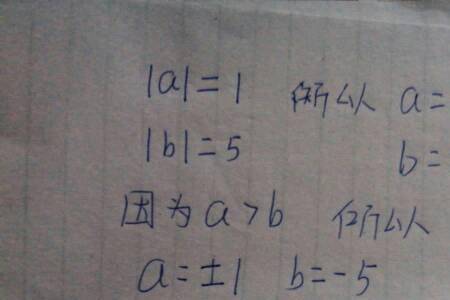 |a|=1 所以 a=
|b|=5 b=
因为 a>b 所以
a=±1 b=-5